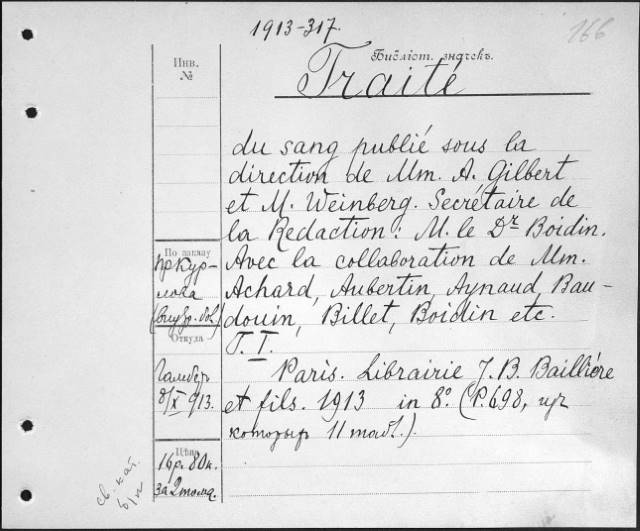 1913-317.
166
Инв.
№
Библіот. значекъ.
Traité
du sang publié sous la
direction de Mm. A. Gilbert
et M. Weinberg. Secrétaire de
la Redaction: M. le Dr Boidin.
Avec la collaboration de Mm.
Achard, Aubertin, Aynaud, Bau-
douin, Billet, Boidin etc.
T. I.
Paris. Librairie J. B. Baillière
et fils. 1913 in 8º. (P. 698, из
которых 11 табл.).
По заказу
пр Кур-
лова
Откуда
8/XI 913.
Цѣна
16 р. 80 к.
за 2 тома.
св. кат.
б/н